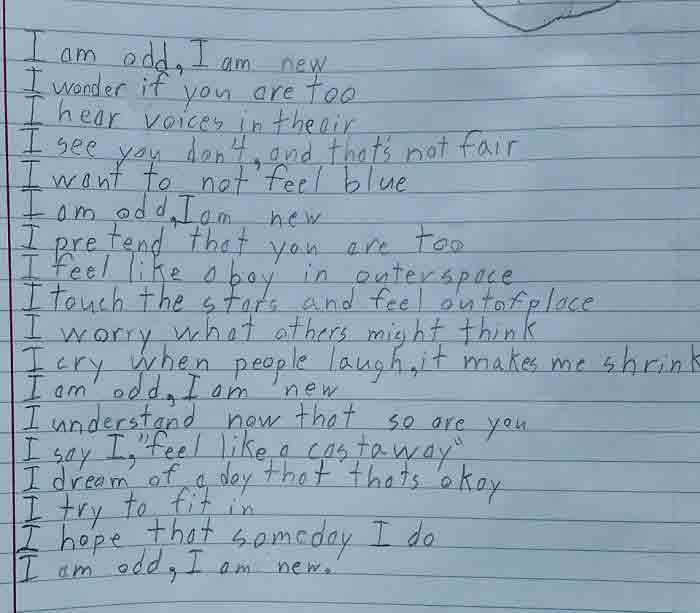 I am odd, I am new
I wonder if you are too
I hear voices in the air
I see you don't, and that's not fair
I want to not feel blue
I am odd, I am new
I pretend that you are too
I feel like a boy in outerspace
I touch the stars and feel out of place
I worry what others might think
I cry when people laugh, it makes me shrink
I am odd, I am new
I understand now that so are you
I say I, "feel like a castaway"
I dream of a day that thats okay
I try to fit in
I hope that someday I do
I am odd, I am new.